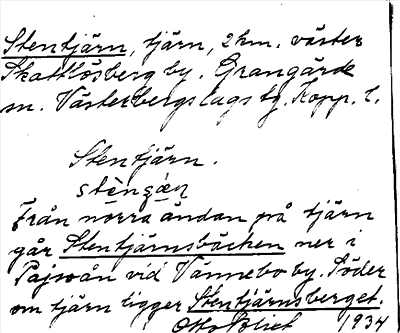 Stentjärn, tjärn, 2 km. väster
Skattlösberg by. Grangärde
m. Västerbergslags tg. Kopp. l.
Stentjärn.
stèngæ̀ṇ
Från norra ändan på tjärn
går Stentjärnsbäcken ner i
Pajsoån vid Vännebo by. Söder
om tjärn ligger Stentjärnsberget.
Otto Blixt 1934